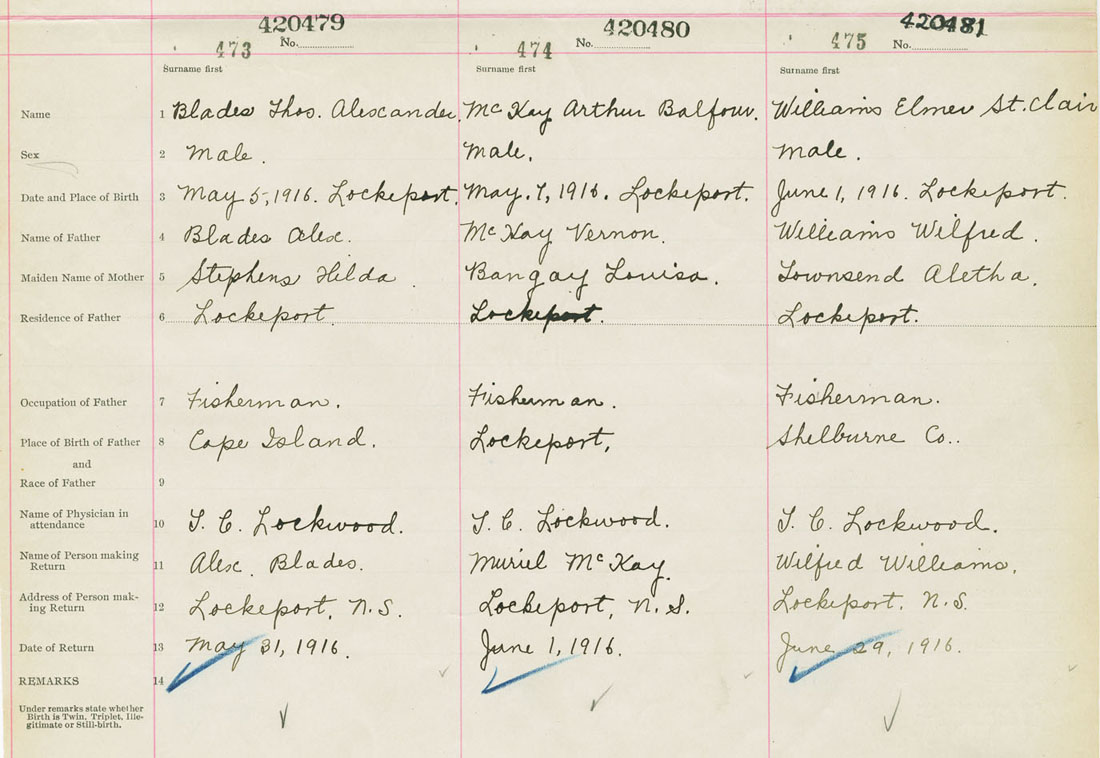 420479 420480 420481
473 No. 474 No. 475 No.
Surname first Surname first Surname first
Name 1 Blades Thos. Alexander. McKay Arthur Balfour. Williams Elmer St. Clair
Sex 2 Male. Male. Male.
Date and Place of Birth 3 May 5, 1916. Lockeport. May. 7, 1916. Lockeport. June 1, 1916. Lockeport.
Name of Father 4 Blades Alex. McKay Vernon. Williams Wilfred.
Maiden Name of Mother 5 Stephens Hilda. Bangay Louisa. Townsend Aletha.
Residence of Father 6 Lockeport. Lockeport. Lockeport.
Occupation of Father 7 Fisherman. Fisherman. Fisherman.
Place of Birth of Father 8 Cape Island. Lockeport. Shelburne Co..
and
Race of Father 9
Name of Physician in
attendance 10 T. C. Lockwood. T. C. Lockwood. T. C. Lockwood.
Name of Person making
Return 11 Alex. Blades. Muriel McKay. Wilfred Williams.
Address of Person mak-
ing Return 12 Lockeport, N.S. Lockeport, N.S. Lockeport. N.S.
Date of Return 13 May 31, 1916. June 1, 1916. June 29, 1916.
REMARKS 14
Under remarks state whether
Birth is Twin, Triplet, Ille-
gitimate or Still-birth.